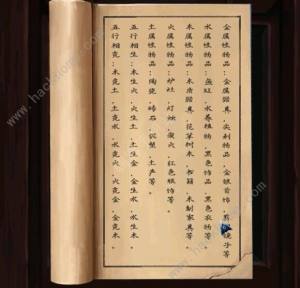 金属性物品:金属器具,尖利物品,金银首饰,剪刀镜子等
水属性物品:鱼缸,水养植物,黑色饰品,黑色衣物等
木属性物品:木质器具,花草树木,书籍,木制家具等
火属性物品:炉灶,灯烛,萤火,红色服饰等
土属性物品:陶瓷,砖石,泥塑,土产等
五行相生:木生火,火生土,土生金,金生水,水生木。
五行相克:木克土,土克水,水克火,火克金,金克木。